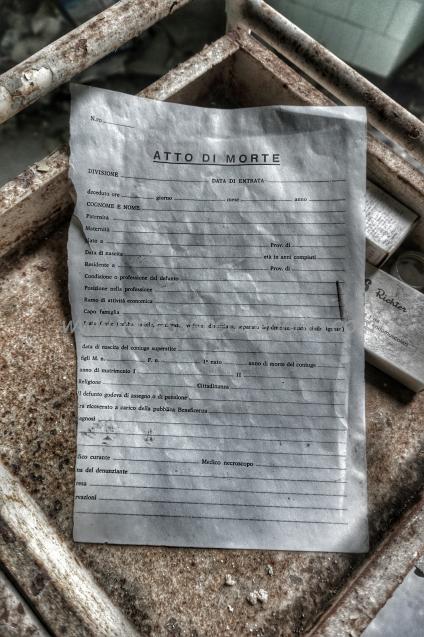 N.ro
ATTO DI MORTE
DIVISIONE DATA DI ENTRATA
deceduto ore giorno mese anno
COGNOME E NOME
Paternità
Maternità
Nato a Prov. di
Data di nascita età in anni compiuti
Residente a Prov. di
Condizione o professione del defunto
Posizione nella professione
Ramo di attività economica
Capo famiglia
data di nascita del coniuge superstite
figli M. n. F. n. 1° nato anno di morte del coniuge
anno di matrimonio I II
Religione Cittadinanza
Il defunto godeva di assegno o di pensione
ra ricoverato a carico della pubblica Beneficenza
agnosi
fico curante Medico necroscopo
ma del denunziante
resa
rvazioni
Richter